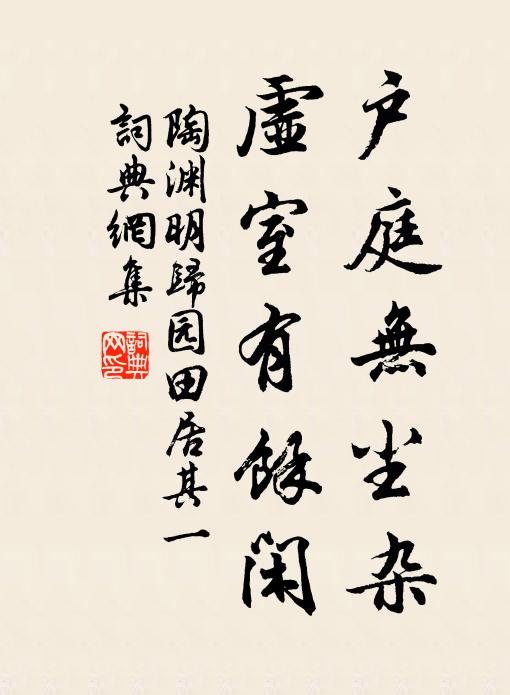 户庭無尘杂
虚室有餘闲
陶渊明歸园田居其一
詞典網集
詞典网印